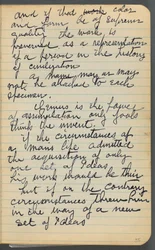 and if that work color
and form be of supreme
quality the work is
preserved as a representation
of a person in the history
of civilization
a name may or may
not be attached to each
specimen.
Genius is the power
of assimilation only fools
think they invent
if the circumstances of
a man's life admitted
the acquisition of only
one set of Ideas
his work should be thin
but if on the contrary
circumstances threw him
in the way of a new
set of Ideas